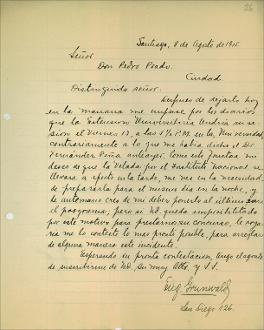 26
Santiago, 8 de Agosto de 1915.
Señor
Don Pedro Prado.
Ciudad
Distinguido señor:
Después de dejarlo hoy
en la mañana me impuse por los diarios
que la Extensión Universitaria tendría su se
sión el Viernes 13, a las 5½ P.M. en la Universidad
contrariamente a lo que me había dicho el Dr.
Fernández Peña anteayer. Como esto
de que la Velada por el Instituto Nacional se
llevara a efecto en la tarde, me veo en la necesidad
de prepararla para el mismo día en la noche, y
de antemano creo de mi deber ponerlo al
el programa; pero si Ud. queda imposibilitado
por este motivo para prestarnos su concurso, le ruego
me lo conteste lo más pronto posible, para arreglar
de alguna manera este incidente.
Esperando su pronta contestación, tengo el agrado
de suscribirme de Ud. su muy Atto. y S.S.
Eug. Grunwald
San Diego 126.